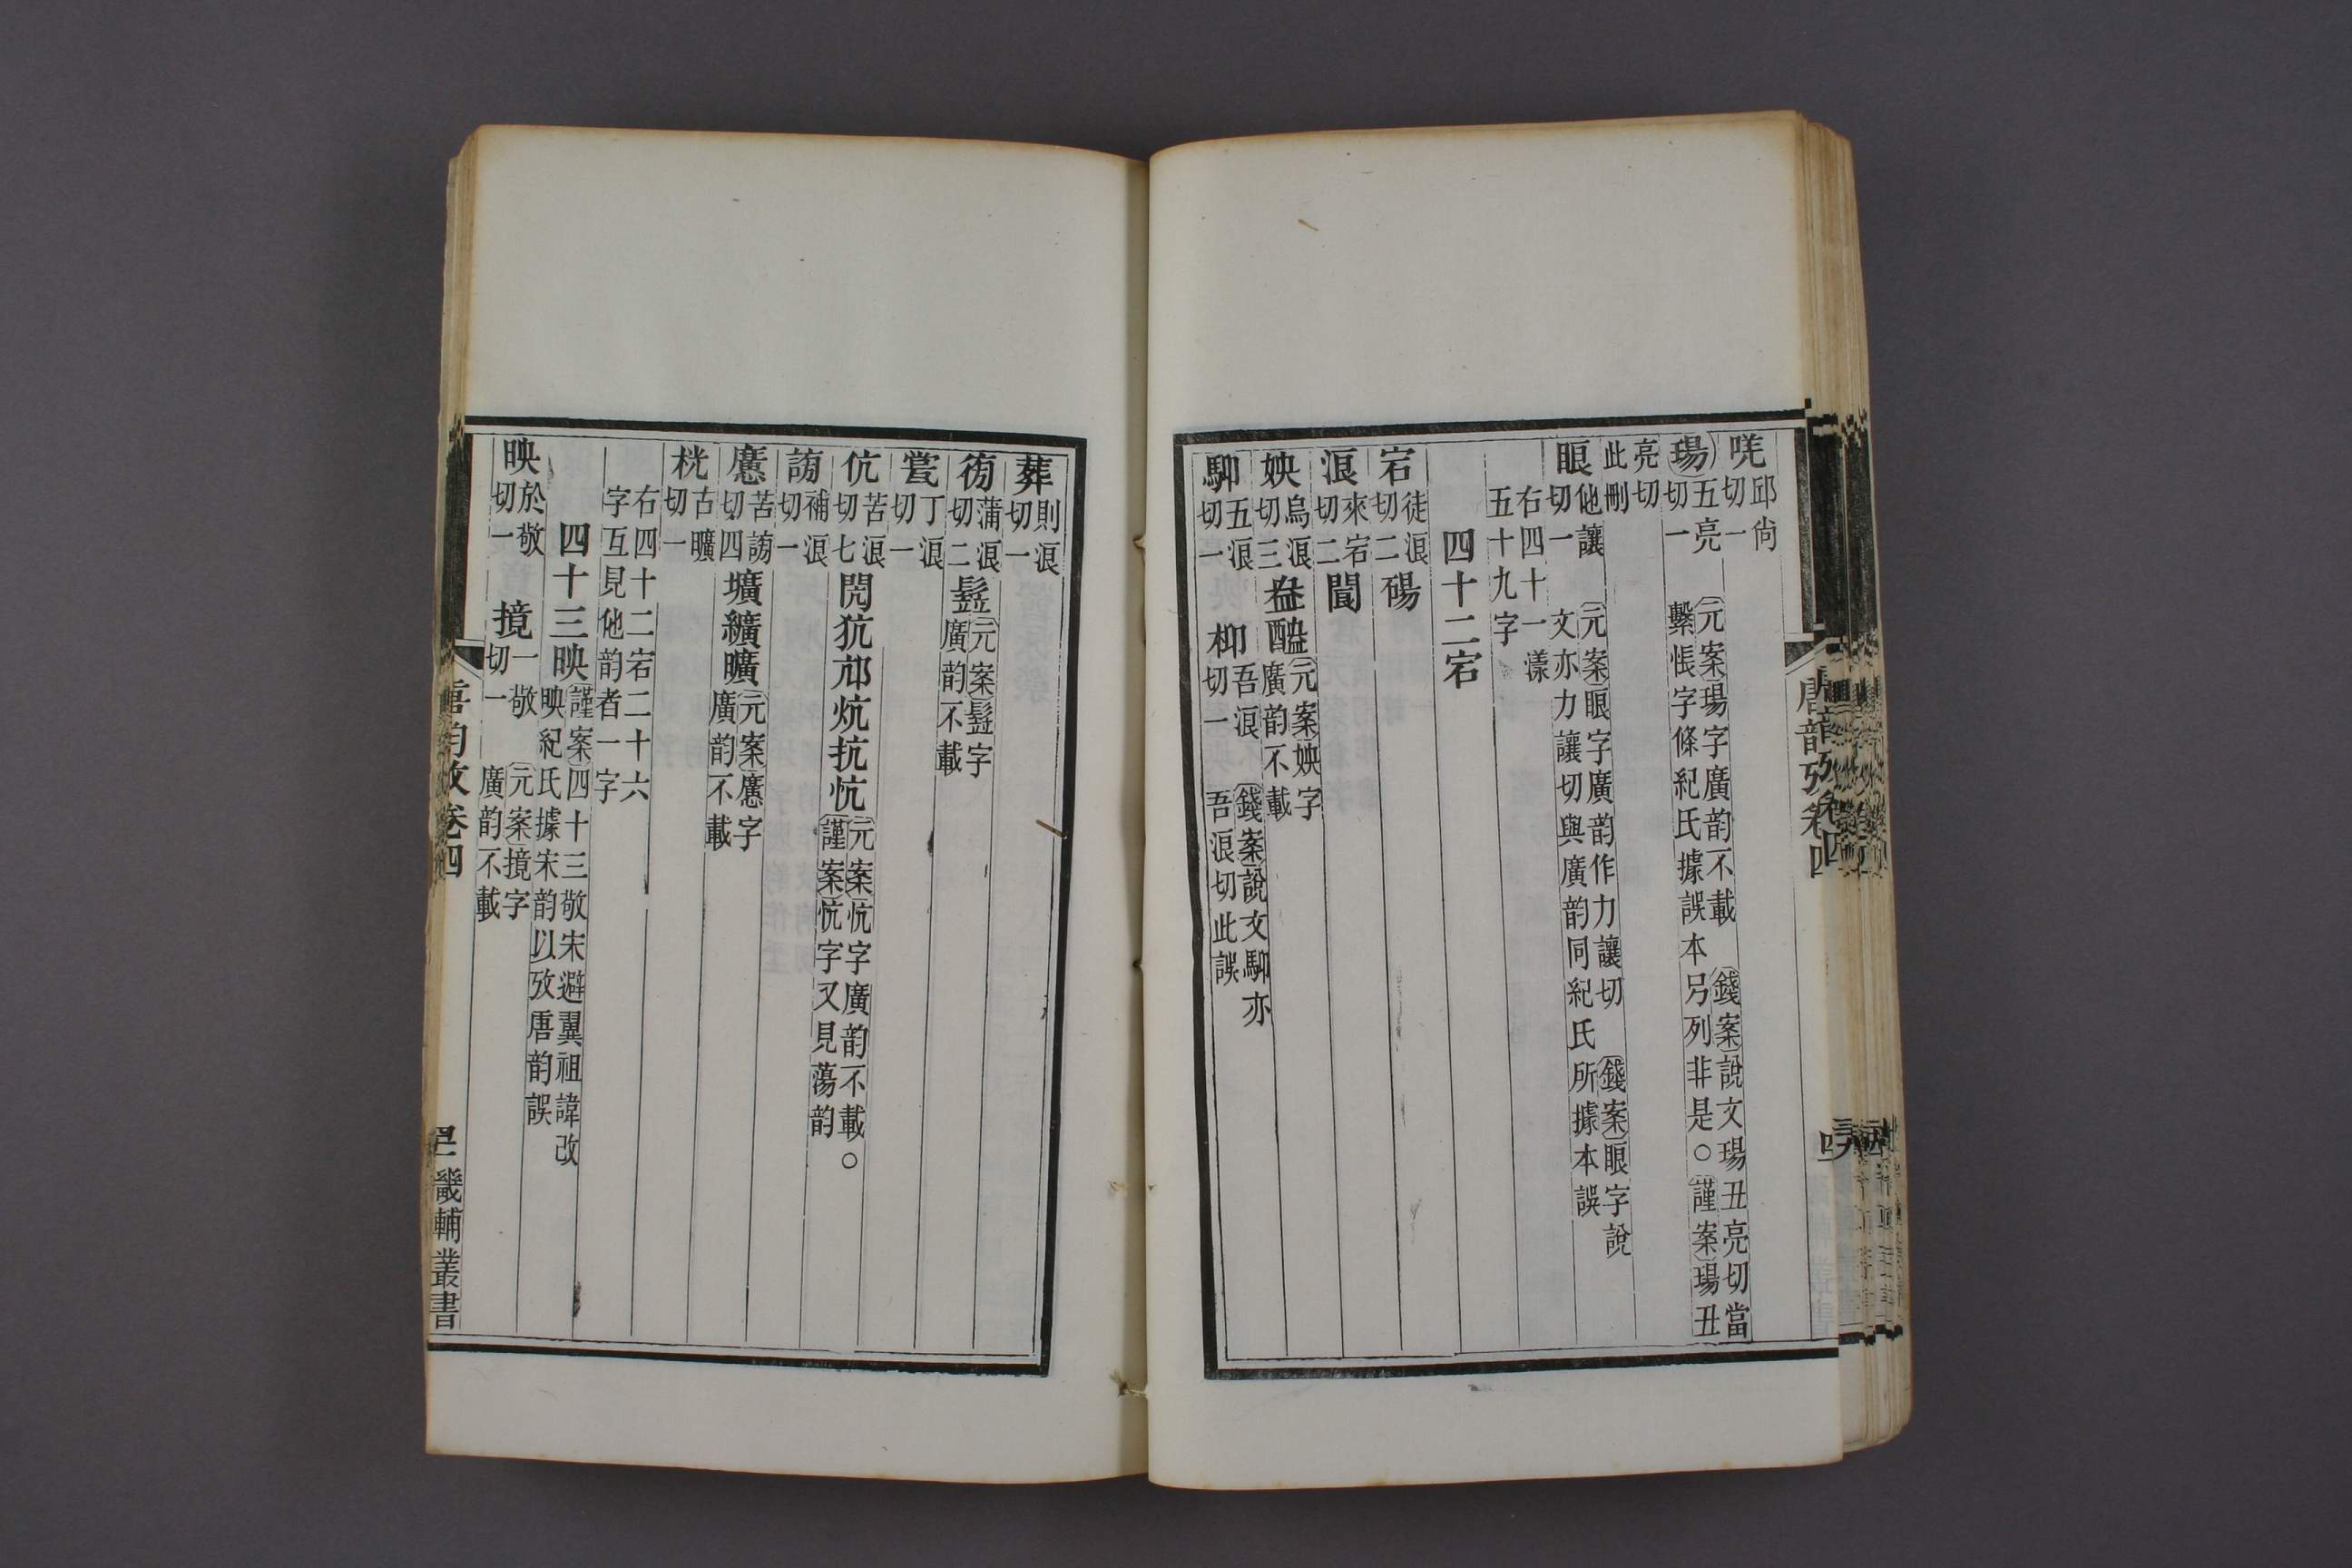 唴邱尚切一
瑒五亮切一 元案瑒字廣韵不載 錢案說文瑒丑亮切當繫悵字條紀氏據誤本另列非是○謹案瑒丑
亮切此刪
眼他讓切一 元案眼字廣韵作力讓切 錢案眼字說文亦力讓切與廣韵同紀氏所據本誤
右四十一漾五十九字
四十二宕
宕徒浪切二碭
浪來宕切二閬
姎烏浪切三盎醠元案姎字廣韵不載
䭹五浪切一 枊吾浪切一 錢案說文䭹亦吾浪切此誤
唐韵攷卷四
葬則浪切一
徬蒲浪切二𩭒元案𩭒字廣韵不載
瓽丁浪切一
伉苦浪切七閌犺邟炕抗忼元案忼字廣韵不載○謹案忼字又見蕩韵
謗補浪切一
懬苦謗切四壙纊曠元案懬字廣韵不載
桄古曠切一
右四十二宕二十六字互見他韵者一字
四十三映謹案四十三敬宋避翼祖諱改映紀氏據宋韵以攷唐韵誤
映於敬切一 摬一敬切一 元案摬字廣韵不載
唐韵攷卷四
畿輔叢書